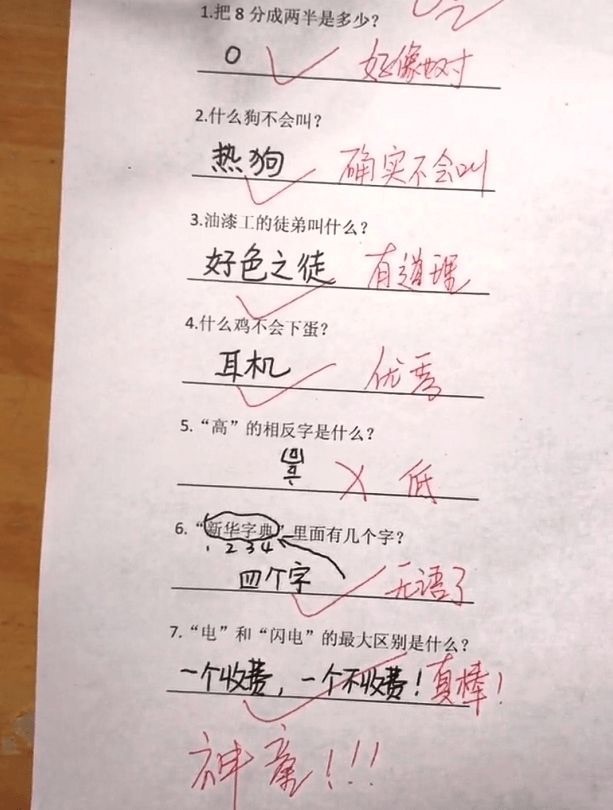 1.把 8 分成两半是多少？
0 好像对
2.什么狗不会叫？
热狗 确实不会叫
3.油漆工的徒弟叫什么？
好色之徒 有道理
4.什么鸡不会下蛋？
耳机 优秀
5.“高”的相反字是什么？
低
6.“新华字典”里面有几个字？
1 2 3 4
四个字 无语了
7.“电”和“闪电”的最大区别是什么？
一个收费，一个不收费！真棒！
神童！！！